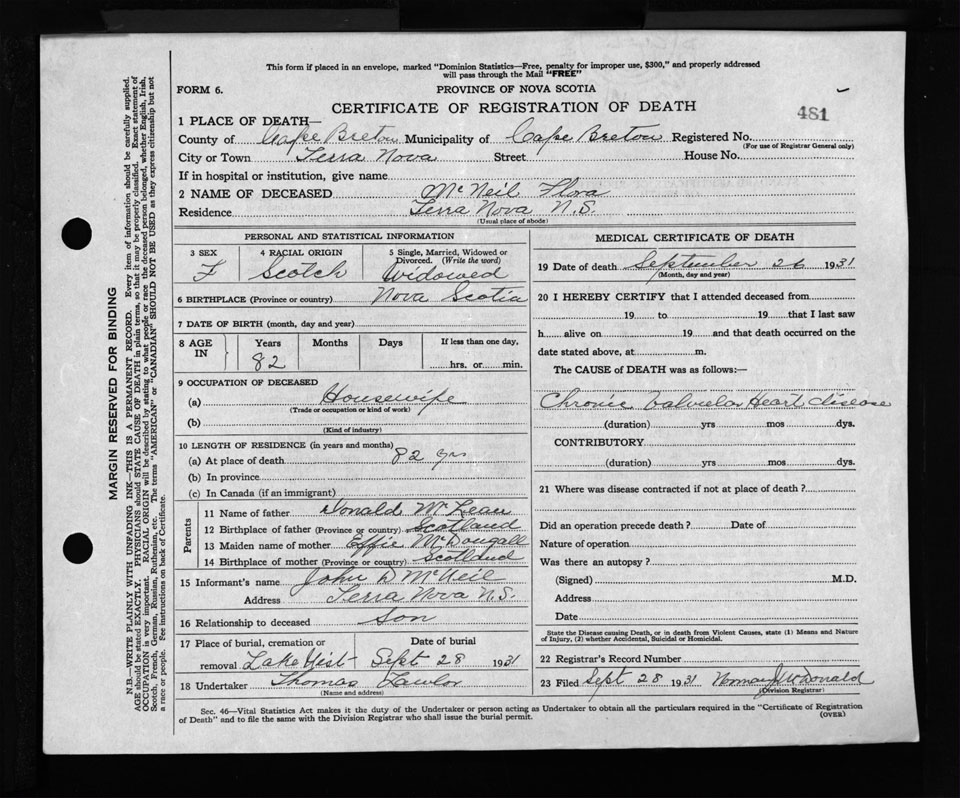 This form if placed in an envelope, marked "Dominion Statistics—Free, penalty for improper use, $300," and properly addressed
will pass through the Mail "FREE"
FORM 6.
PROVINCE OF NOVA SCOTIA
CERTIFICATE OF REGISTRATION OF DEATH
481
1 PLACE OF DEATH—
County of Cape Breton Municipality of Cape Breton Registered No.
(For use of Registrar General only)
City or Town Terra Nova Street House No.
If in hospital or institution, give name
2 NAME OF DECEASED McNeil Flora
Residence Terra Nova N.S.
(Usual place of abode)
PERSONAL AND STATISTICAL INFORMATION
3 SEX 4 RACIAL ORIGIN 5 Single, Married, Widowed or
Divorced. (Write the word)
F Scotch Widowed
6 BIRTHPLACE (Province or country) Nova Scotia
7 DATE OF BIRTH (month, day and year)
8 AGE IN Years Months Days If less than one day,
82 hrs. or min.
9 OCCUPATION OF DECEASED
(a) Housewife
(Trade or occupation or kind of work)
(b)
(Kind of industry)
10 LENGTH OF RESIDENCE (in years and months)
(a) At place of death 82 yrs
(b) In province
(c) In Canada (if an immigrant)
Parents
11 Name of father Donald McLean
12 Birthplace of father (Province or country) Scotland
13 Maiden name of mother Effie McDougall
14 Birthplace of mother (Province or country) Scotland
15 Informant's name John D McNeil
Address Terra Nova N.S.
16 Relationship to deceased Son
17 Place of burial, cremation or Date of burial
removal Lake Uist Sept 28 1931
18 Undertaker Thomas Lawlor
(Name and address)
MEDICAL CERTIFICATE OF DEATH
19 Date of death September 26 1931
(Month, day and year)
20 I HEREBY CERTIFY that I attended deceased from
19 to 19 that I last saw
h alive on 19 and that death occurred on the
date stated above, at m.
The CAUSE of DEATH was as follows:—
Chronic Valvular Heart disease
(duration) yrs mos dys.
CONTRIBUTORY
(duration) yrs mos dys.
21 Where was disease contracted if not at place of death ?
Did an operation precede death ? Date of
Nature of operation
Was there an autopsy ?
(Signed) M.D.
Address
Date
State the Disease causing Death, or in death from Violent Causes, state (1) Means and Nature
of Injury, (2) whether Accidental, Suicidal or Homicidal.
22 Registrar's Record Number
23 Filed Sept 28 1931 Norman J McDonald
(Division Registrar)
Sec. 46—Vital Statistics Act makes it the duty of the Undertaker or person acting as Undertaker to obtain all the particulars required in the "Certificate of Registration
of Death" and to file the same with the Division Registrar who shall issue the burial permit.
(OVER)
MARGIN RESERVED FOR BINDING
N.B.—WRITE PLAINLY WITH UNFADING INK—THIS IS A PERMANENT RECORD. Every item of information should be carefully supplied.
AGE should be stated EXACTLY. PHYSICIANS should STATE CAUSE OF DEATH in plain terms, so that it may be properly classified. Exact statement of
OCCUPATION is very important. RACIAL ORIGIN will be described by stating to what people or race the deceased person belonged, whether English, Irish,
Scotch, French, German, Russian, Ruthenian, etc. The terms "AMERICAN" or "CANADIAN" SHOULD NOT BE USED as they express citizenship but not
a race or people. Fee instructions on back of Certificate.